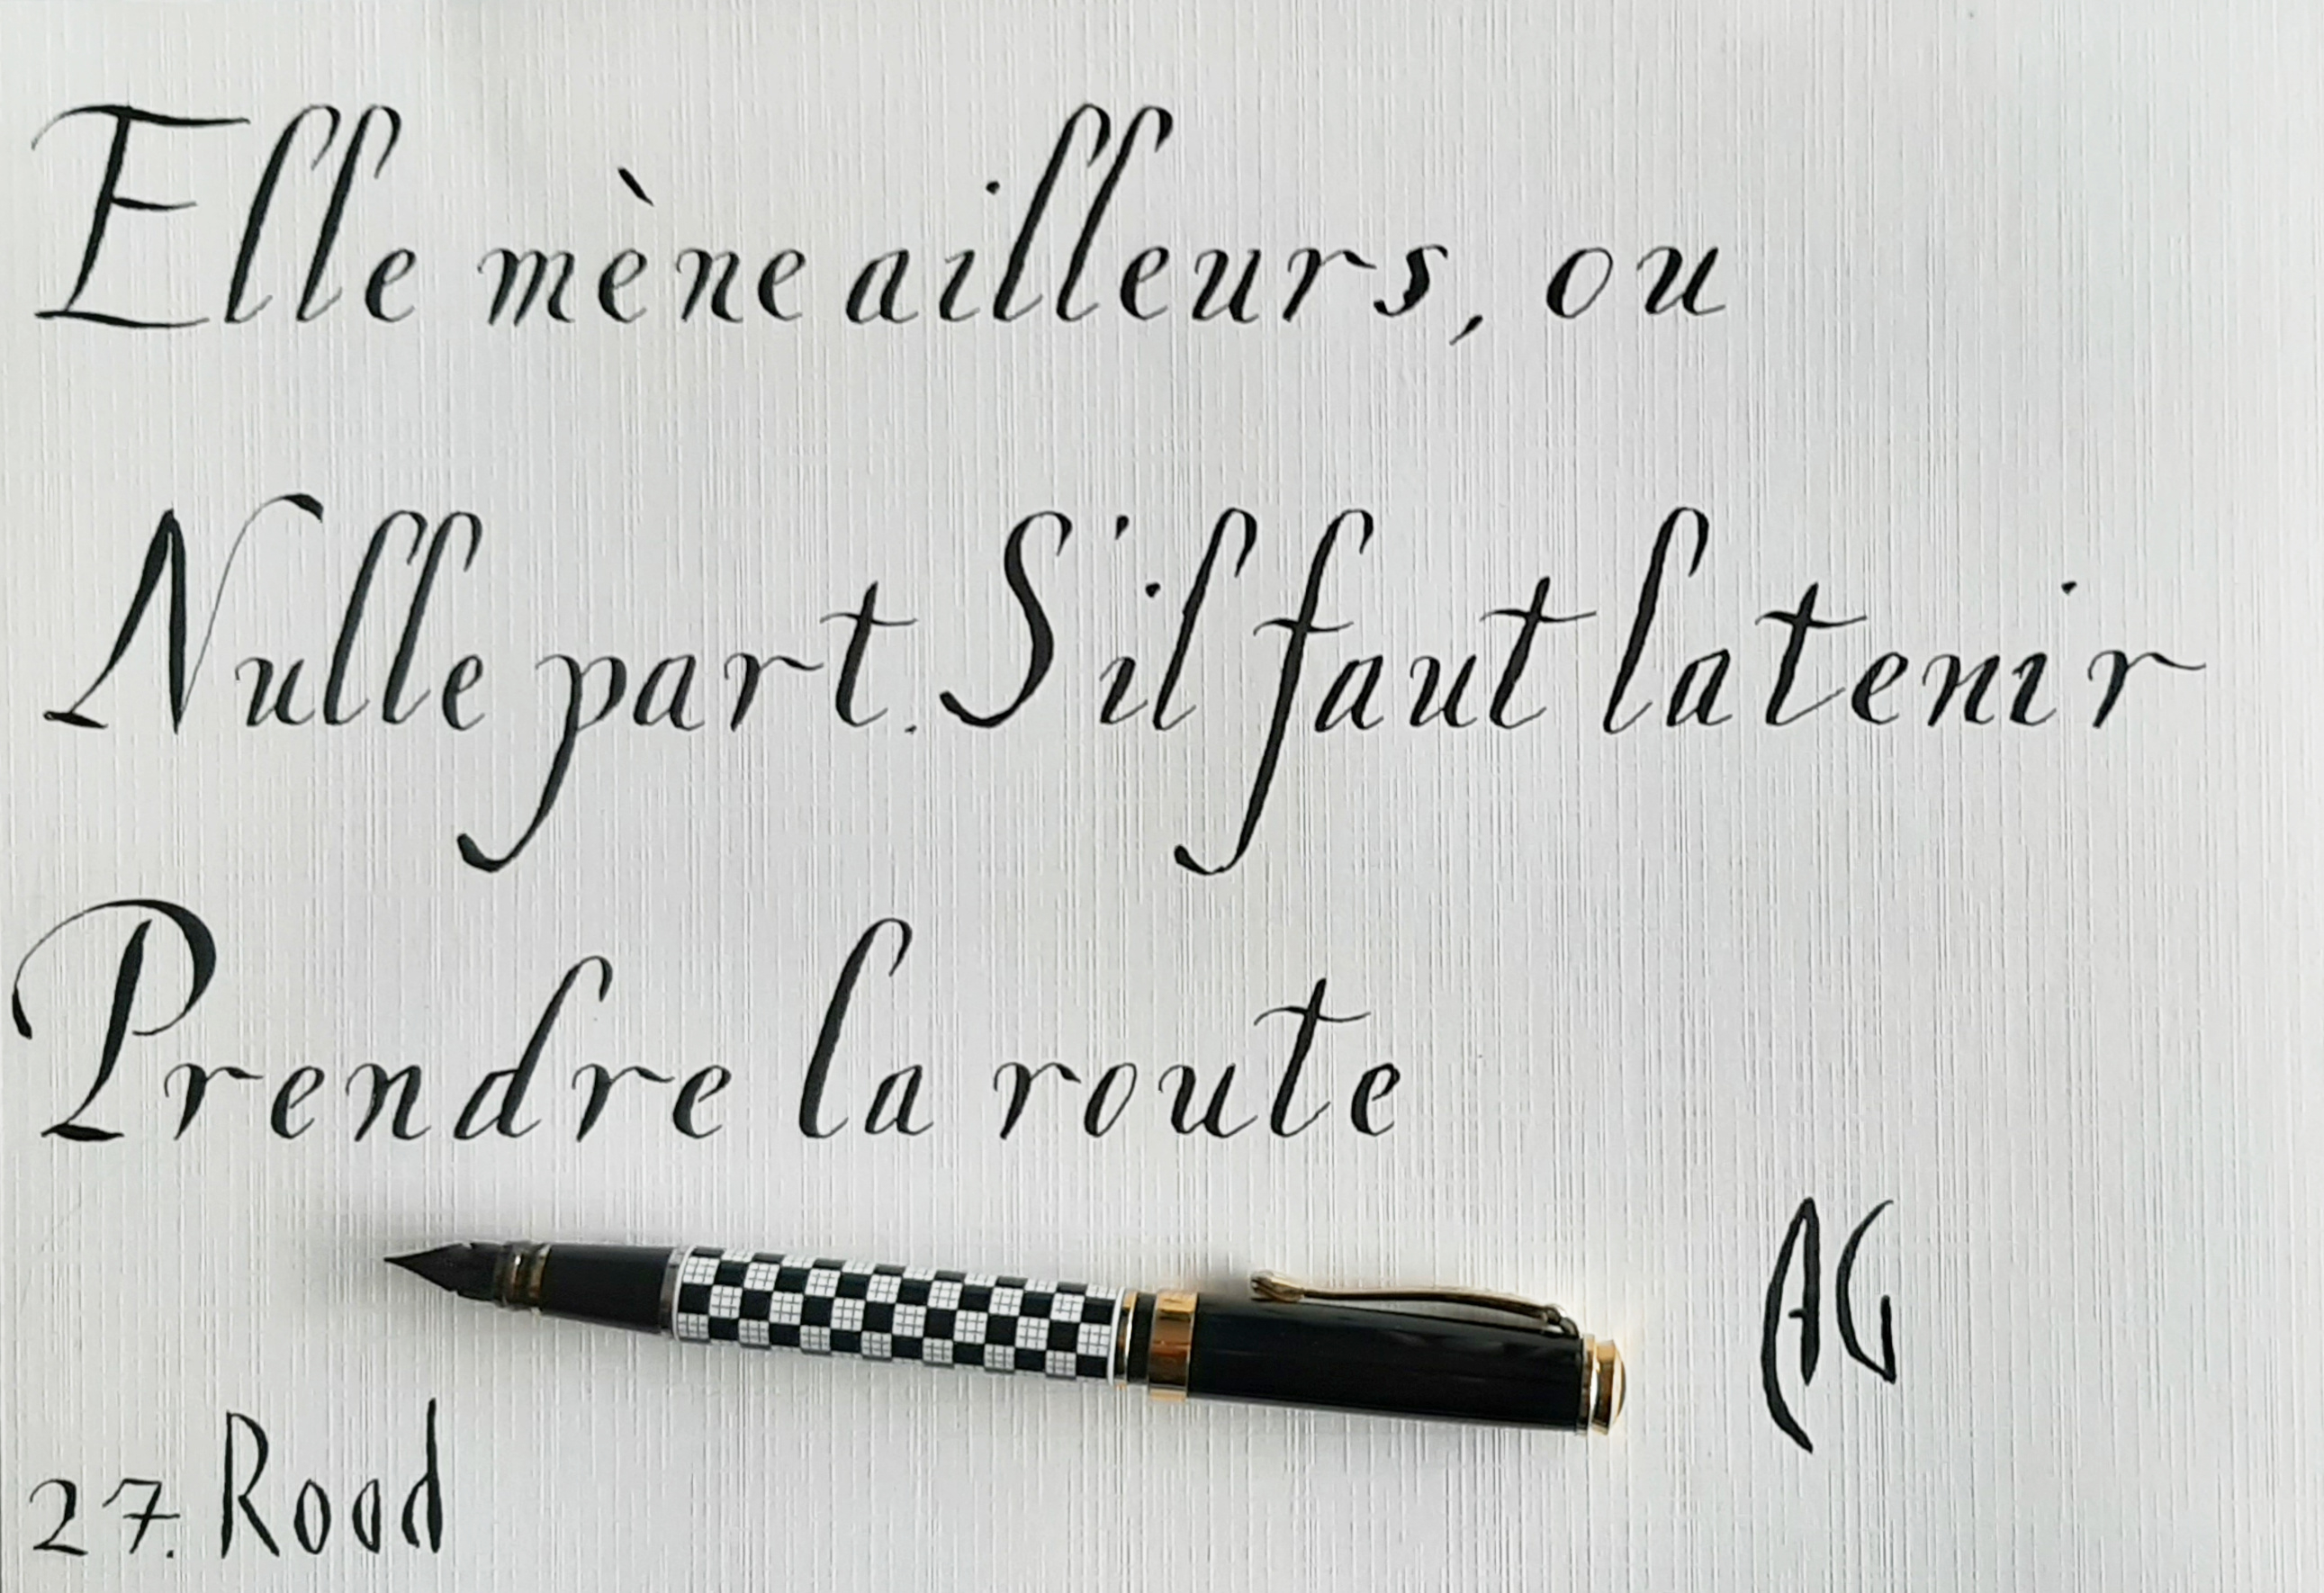 Elle mène ailleurs, ou
Nulle part. S'il faut la tenir
Prendre la route
AG
27. Road